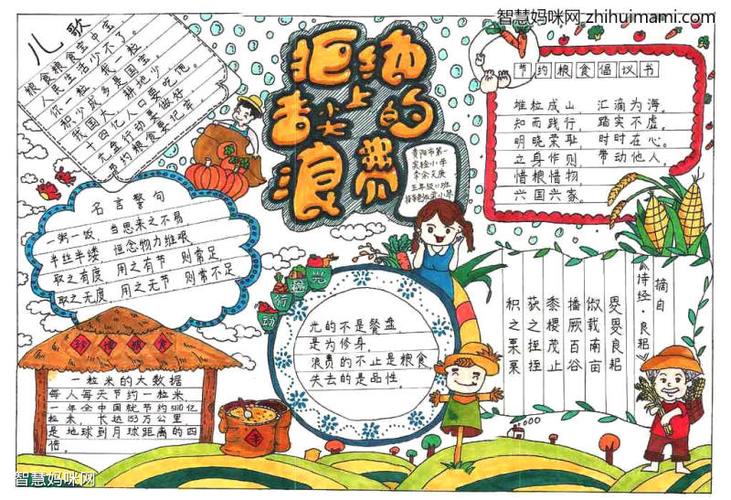 智慧妈咪网 zhihuimami.com
儿歌
粮食粮食宝中宝
人民生活少不了。
你一粒，我一粒
积少成多是国宝
我国大，耕地少
十四亿人口要吃吧
光盘行动要做好
节约粮食要记牢。
拒绝
舌尖上的
浪费
贵阳市第一
实验小学
五年级
节约粮食倡议书
堆粒成山 汇滴为海。
知而践行， 踏实不虚
明晓荣耻 时时在心。
立身作则 带动他人，
惜粮惜物
兴国兴家。
名言警句
一粥一饭，当思来之不易
半丝半缕 恒念物力维艰
取之有度 用之有节 则常足
取之无度，用之无节 则常不足
光盘行动
光的不是餐盘
是为修身，
浪费的不止是粮食
失去的是品性。
摘自
《诗经·良耜
畟畟良耜
俶载南亩
播厥百谷
黍稷茂止
获之挃挃
积之栗栗
珍惜粮食
一粒米的大数据
每人每天节约一粒米
一年全中国就节约5110亿
粒米，长达153万公里
是地球到月球距离的四
倍。
智慧妈咪网